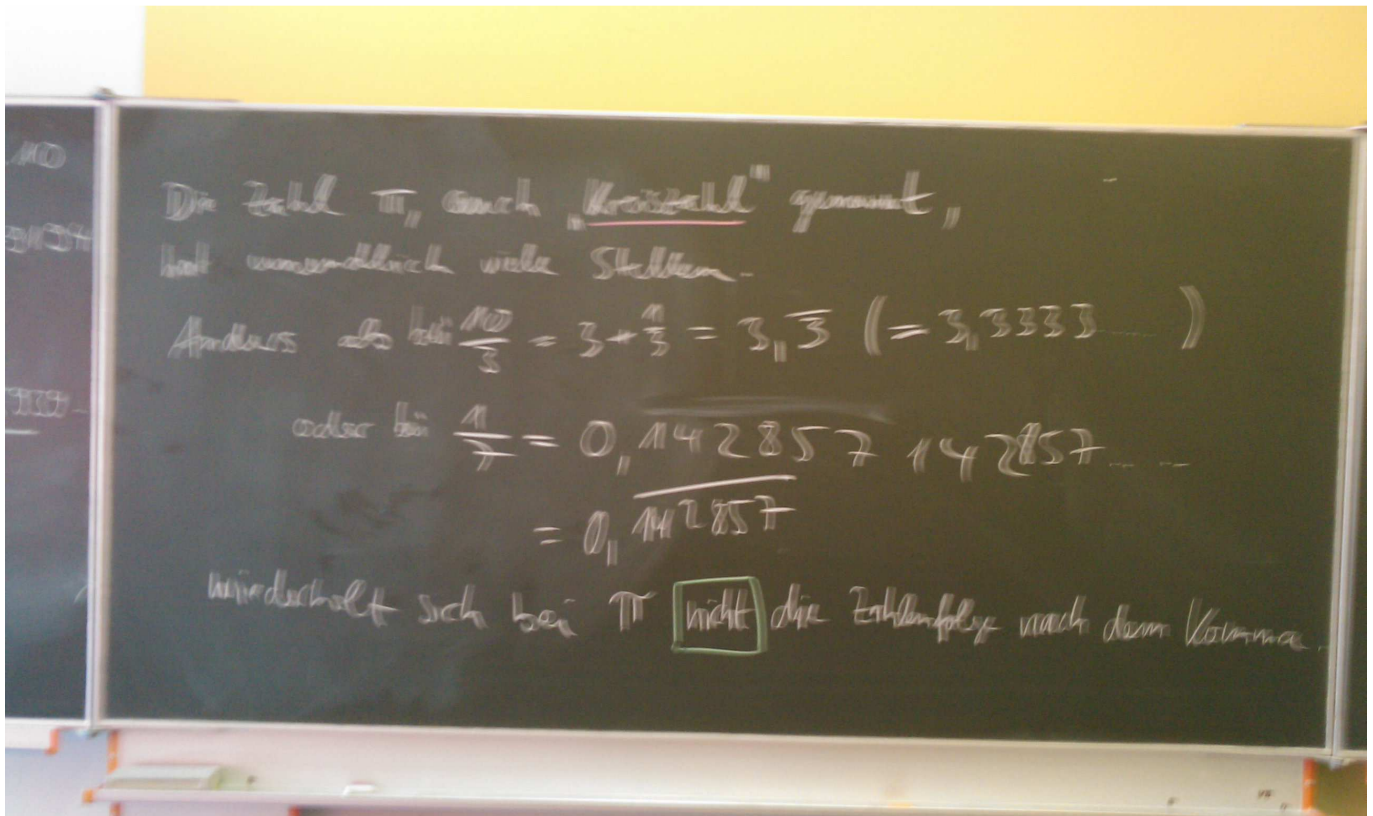 10
Die Zahl π, auch „Kreiszahl" genannt,
hat unendlich viele Stellen.
Anders als bei 10/3 = 3 + 1/3 = 3,3̅ (= 3,3333.....)
oder bei 1/7 = 0,142857 142857.....
= 0,1̅4̅2̅8̅5̅7̅
wiederholt sich bei π nicht die Zahlenfolge nach dem Komma.